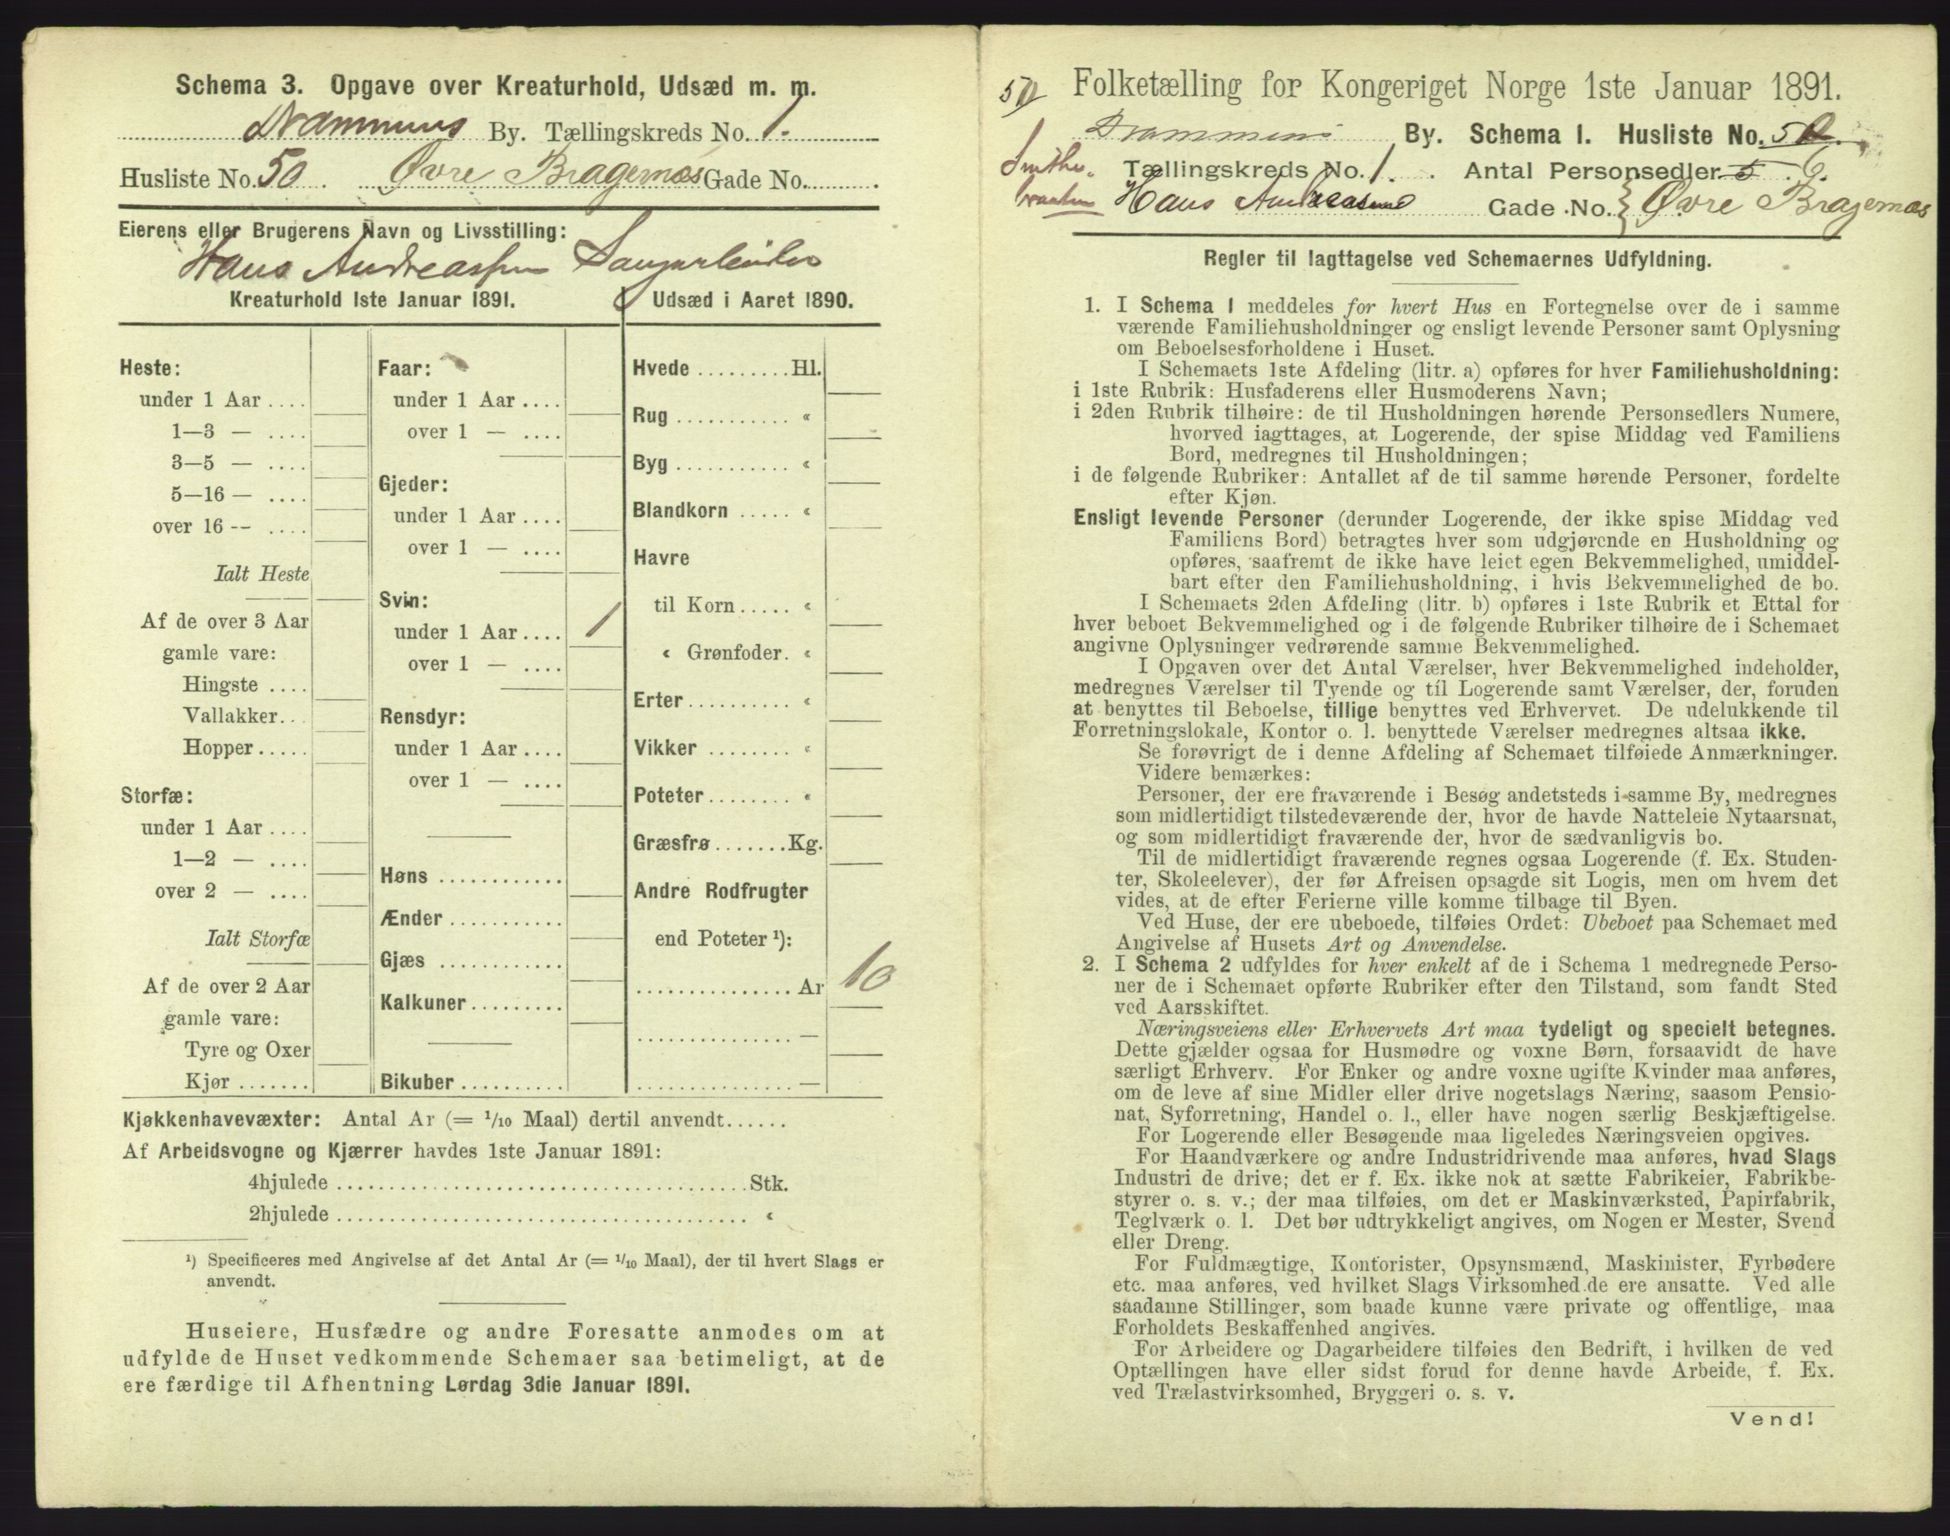 Schema 3. Opgave over Kreaturhold, Udsæd m. m.
Drammens By. Tællingskreds No. 1.
Husliste No. 50. Øvre Bragernæs Gade No.
Eierens eller Brugerens Navn og Livsstilling:
Hans Andreassen
Kreaturhold 1ste Januar 1891.
Heste:
under 1 Aar ....
1—3 — ....
3—5 — ....
5—16 — ....
over 16 -- ....
Ialt Heste
Af de over 3 Aar
gamle vare:
Hingste ....
Vallakker...
Hopper.....
Storfæ:
under 1 Aar ....
1—2 — ....
over 2 — ....
Ialt Storfæ
Af de over 2 Aar
gamle vare:
Tyre og Oxer
Kjør .......
Faar:
under 1 Aar ....
over 1 — ....
Gjeder:
under 1 Aar ....
over 1 — ....
Svin:
under 1 Aar.... 1
over 1 — ....
Rensdyr:
under 1 Aar ....
over 1 — ....
Høns ............
Ænder ...........
Gjæs ............
Kalkuner.........
Bikuber ..........
Udsæd i Aaret 1890.
Hvede .........Hl.
Rug ........... «
Byg ........... «
Blandkorn ..... «
Havre
til Korn..... «
« Grønfoder. «
Erter.......... «
Vikker ........ «
Poteter........ «
Græsfrø.......Kg.
Andre Rodfrugter
end Poteter ¹):
...............Ar 10
...............—
...............—
Kjøkkenhavevæxter: Antal Ar (= 1/10 Maal) dertil anvendt......
Af Arbeidsvogne og Kjærrer havdes 1ste Januar 1891:
4hjulede ........................................Stk.
2hjulede ........................................ «
¹) Specificeres med Angivelse af det Antal Ar (= 1/10 Maal), der til hvert Slags er
anvendt.
Huseiere, Husfædre og andre Foresatte anmodes om at
udfylde de Huset vedkommende Schemaer saa betimeligt, at de
ere færdige til Afhentning Lørdag 3die Januar 1891.
50 Folketælling for Kongeriget Norge 1ste Januar 1891.
Drammens By. Schema 1. Husliste No. 50.
Tællingskreds No. 1. Antal Personsedler 5. 6.
Hans Andreasen Gade No. } Øvre Bragernæs
Regler til Iagttagelse ved Schemaernes Udfyldning.
1. I Schema 1 meddeles for hvert Hus en Fortegnelse over de i samme
værende Familiehusholdninger og ensligt levende Personer samt Oplysning
om Beboelsesforholdene i Huset.
I Schemaets 1ste Afdeling (litr. a) opføres for hver Familiehusholdning:
i 1ste Rubrik: Husfaderens eller Husmoderens Navn;
i 2den Rubrik tilhøire: de til Husholdningen hørende Personsedlers Numere,
hvorved iagttages, at Logerende, der spise Middag ved Familiens
Bord, medregnes til Husholdningen;
i de følgende Rubriker: Antallet af de til samme hørende Personer, fordelte
efter Kjøn.
Ensligt levende Personer (derunder Logerende, der ikke spise Middag ved
Familiens Bord) betragtes hver som udgjørende en Husholdning og
opføres, saafremt de ikke have leiet egen Bekvemmelighed, umiddel-
bart efter den Familiehusholdning, i hvis Bekvemmelighed de bo.
I Schemaets 2den Afdeling (litr. b) opføres i 1ste Rubrik et Ettal for
hver beboet Bekvemmelighed og i de følgende Rubriker tilhøire de i Schemaet
angivne Oplysninger vedrørende samme Bekvemmelighed.
I Opgaven over det Antal Værelser, hver Bekvemmelighed indeholder,
medregnes Værelser til Tyende og til Logerende samt Værelser, der, foruden
at benyttes til Beboelse, tillige benyttes ved Erhvervet. De udelukkende til
Forretningslokale, Kontor o. l. benyttede Værelser medregnes altsaa ikke.
Se forøvrigt de i denne Afdeling af Schemaet tilføiede Anmærkninger.
Videre bemærkes:
Personer, der ere fraværende i Besøg andetsteds i samme By, medregnes
som midlertidigt tilstedeværende der, hvor de havde Natteleie Nytaarsnat,
og som midlertidigt fraværende der, hvor de sædvanligvis bo.
Til de midlertidigt fraværende regnes ogsaa Logerende (f. Ex. Studen-
ter, Skoleelever), der før Afreisen opsagde sit Logis, men om hvem det
vides, at de efter Ferierne ville komme tilbage til Byen.
Ved Huse, der ere ubeboede, tilføies Ordet: Ubeboet paa Schemaet med
Angivelse af Husets Art og Anvendelse.
2. I Schema 2 udfyldes for hver enkelt af de i Schema 1 medregnede Perso-
ner de i Schemaet opførte Rubriker efter den Tilstand, som fandt Sted
ved Aarsskiftet.
Næringsveiens eller Erhvervets Art maa tydeligt og specielt betegnes.
Dette gjælder ogsaa for Husmødre og voxne Børn, forsaavidt de have
særligt Erhverv. For Enker og andre voxne ugifte Kvinder maa anføres,
om de leve af sine Midler eller drive nogetslags Næring, saasom Pensio-
nat, Syforretning, Handel o. l., eller have nogen særlig Beskjæftigelse.
For Logerende eller Besøgende maa ligeledes Næringsveien opgives.
For Haandværkere og andre Industridrivende maa anføres, hvad Slags
Industri de drive; det er f. Ex. ikke nok at sætte Fabrikeier, Fabrikbe-
styrer o. s. v.; der maa tilføies, om det er Maskinværksted, Papirfabrik,
Teglværk o. l. Det bør udtrykkeligt angives, om Nogen er Mester, Svend
eller Dreng.
For Fuldmægtige, Kontorister, Opsynsmænd, Maskinister, Fyrbødere
etc. maa anføres, ved hvilket Slags Virksomhed de ere ansatte. Ved alle
saadanne Stillinger, som baade kunne være private og offentlige, maa
Forholdets Beskaffenhed angives.
For Arbeidere og Dagarbeidere tilføies den Bedrift, i hvilken de ved
Optællingen have eller sidst forud for denne havde Arbeide, f. Ex.
ved Trælastvirksomhed, Bryggeri o. s. v.
Vend!